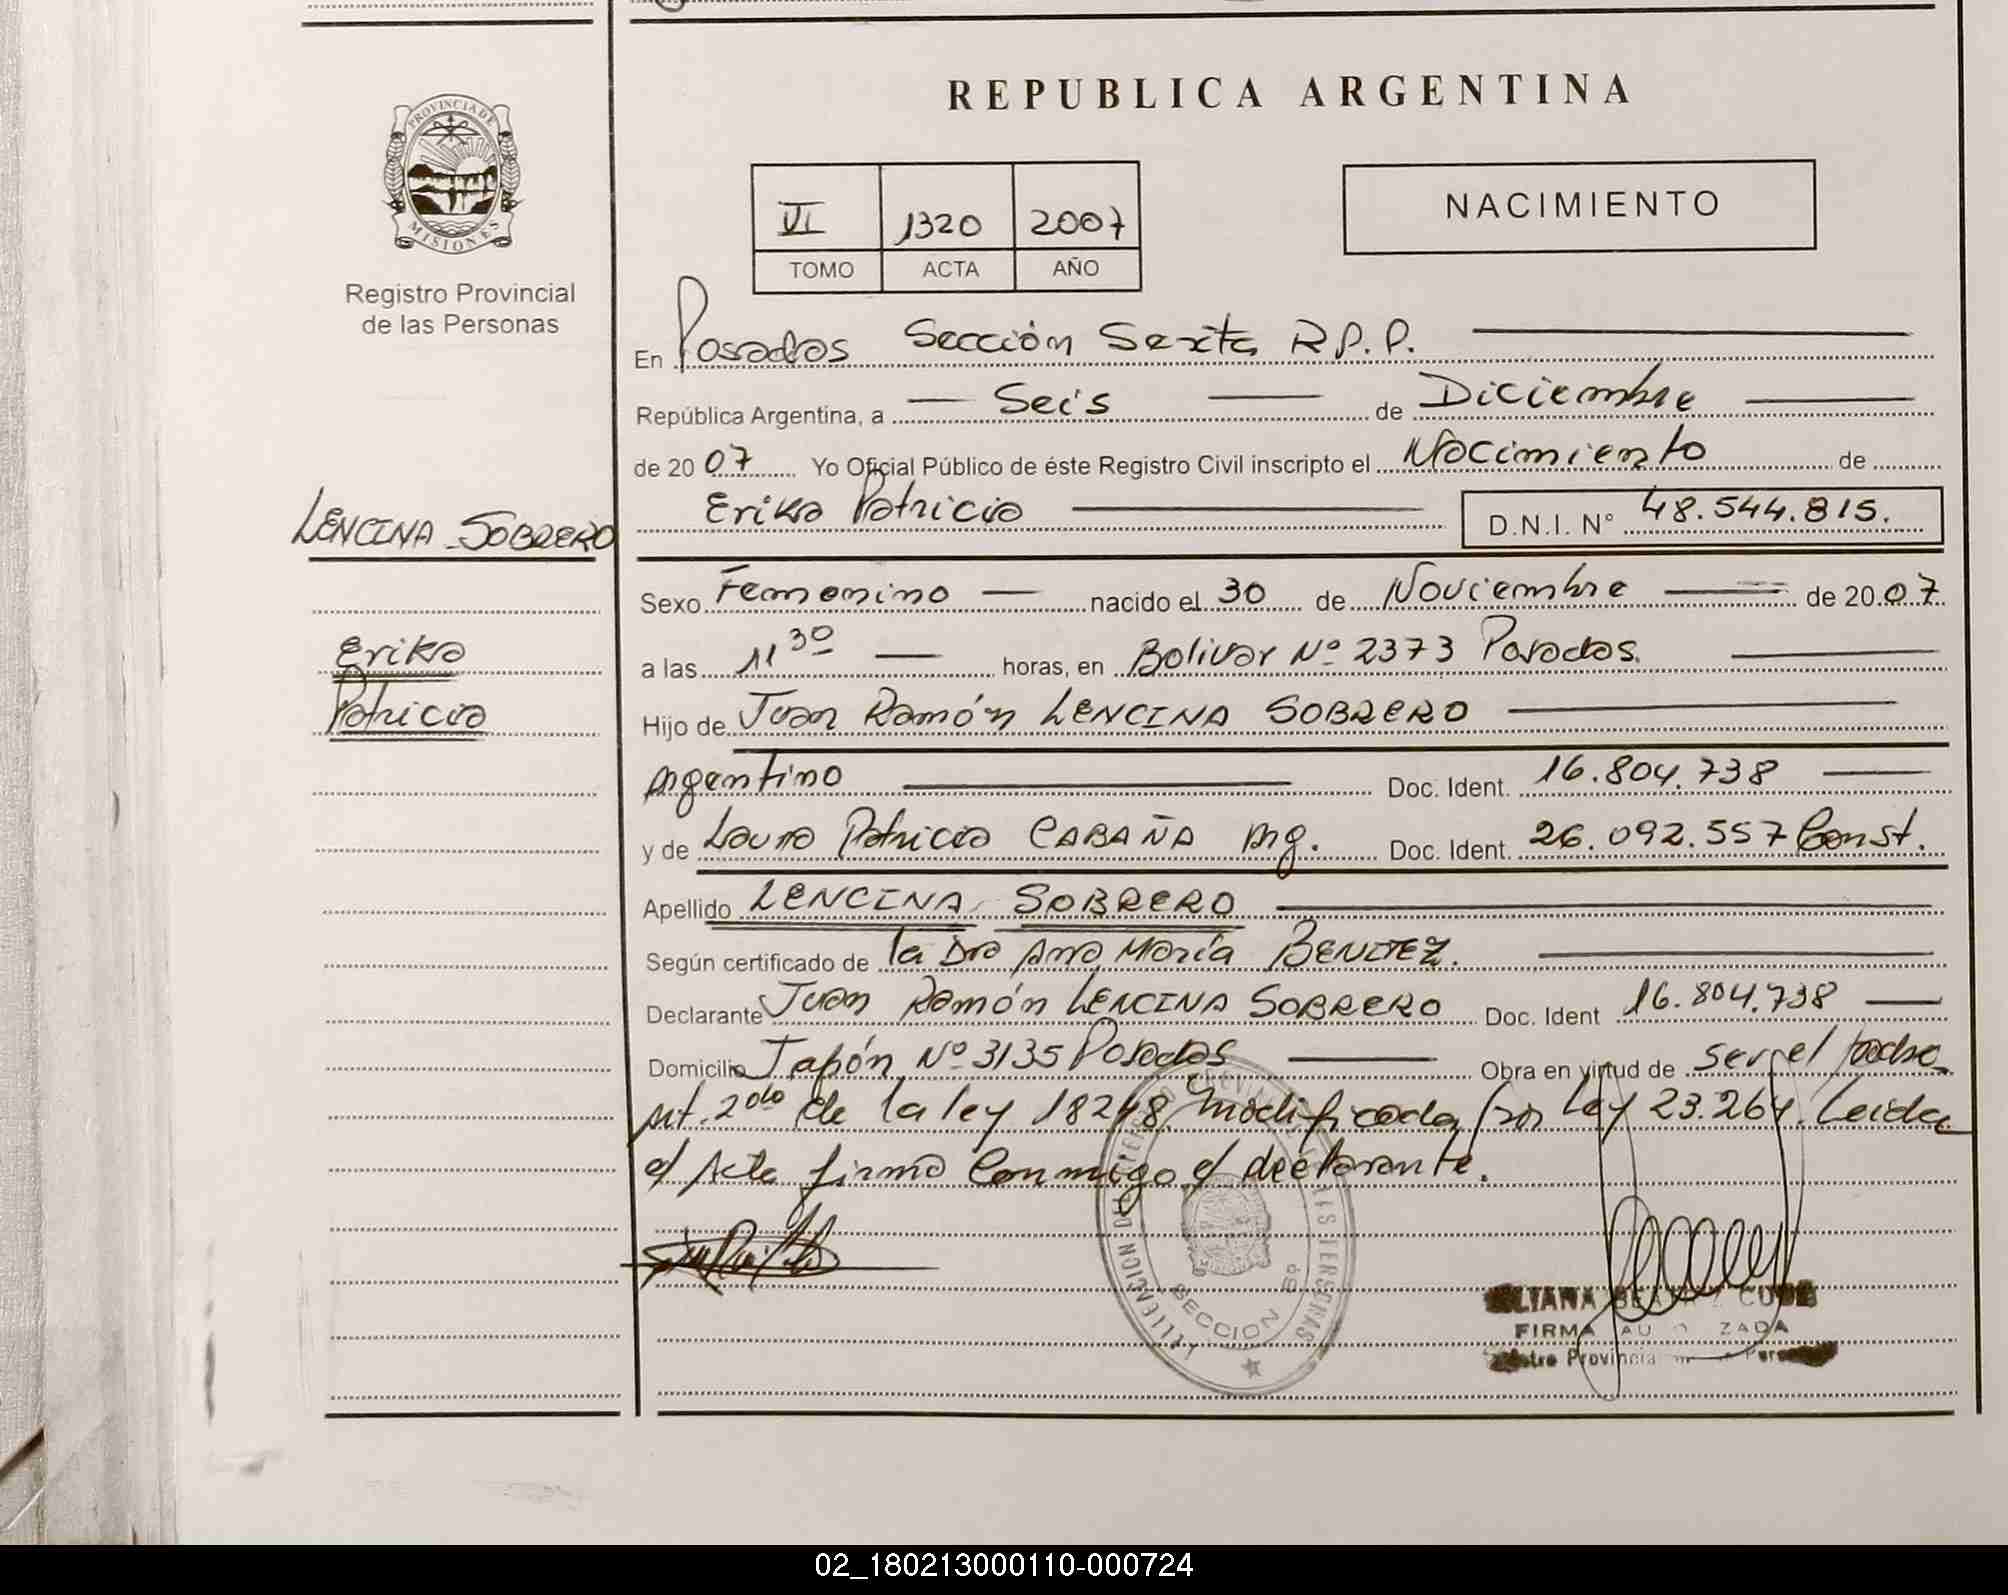 REPUBLICA ARGENTINA
PROVINCIA DE
MISIONES
Registro Provincial
de las Personas
VI 1320 2007
TOMO ACTA AÑO
NACIMIENTO
En Posadas Sección Sexta R.P.P.
República Argentina, a Seis de Diciembre
de 20 07 Yo Oficial Público de éste Registro Civil inscripto el Nacimiento de
Erika Patricia D.N.I. N° 48.544.815.
LENCINA SOBRERO
Sexo Femenino nacido el 30 de Noviembre de 20 07
Erika
a las 11 30 horas, en Bolivar Nº 2373 Posadas.
Patricia
Hijo de Juan Ramón LENCINA SOBRERO
Argentino Doc. Ident. 16.804.738
y de Laura Patricia CABAÑA Arg. Doc. Ident. 26.092.557 Const.
Apellido LENCINA SOBRERO
Según certificado de la Dra Ana María BENITEZ.
Declarante Juan Ramón LENCINA SOBRERO Doc. Ident 16.804.738
Domicilio Japón Nº 3135 Posadas Obra en virtud de ser el padre
Art. 2do de la ley 18248 modificada por Ley 23.264. Leida
el Acta firma Conmigo el declarante.
SECCION 6º
FIRMA AUTORIZADA
02_180213000110-000724